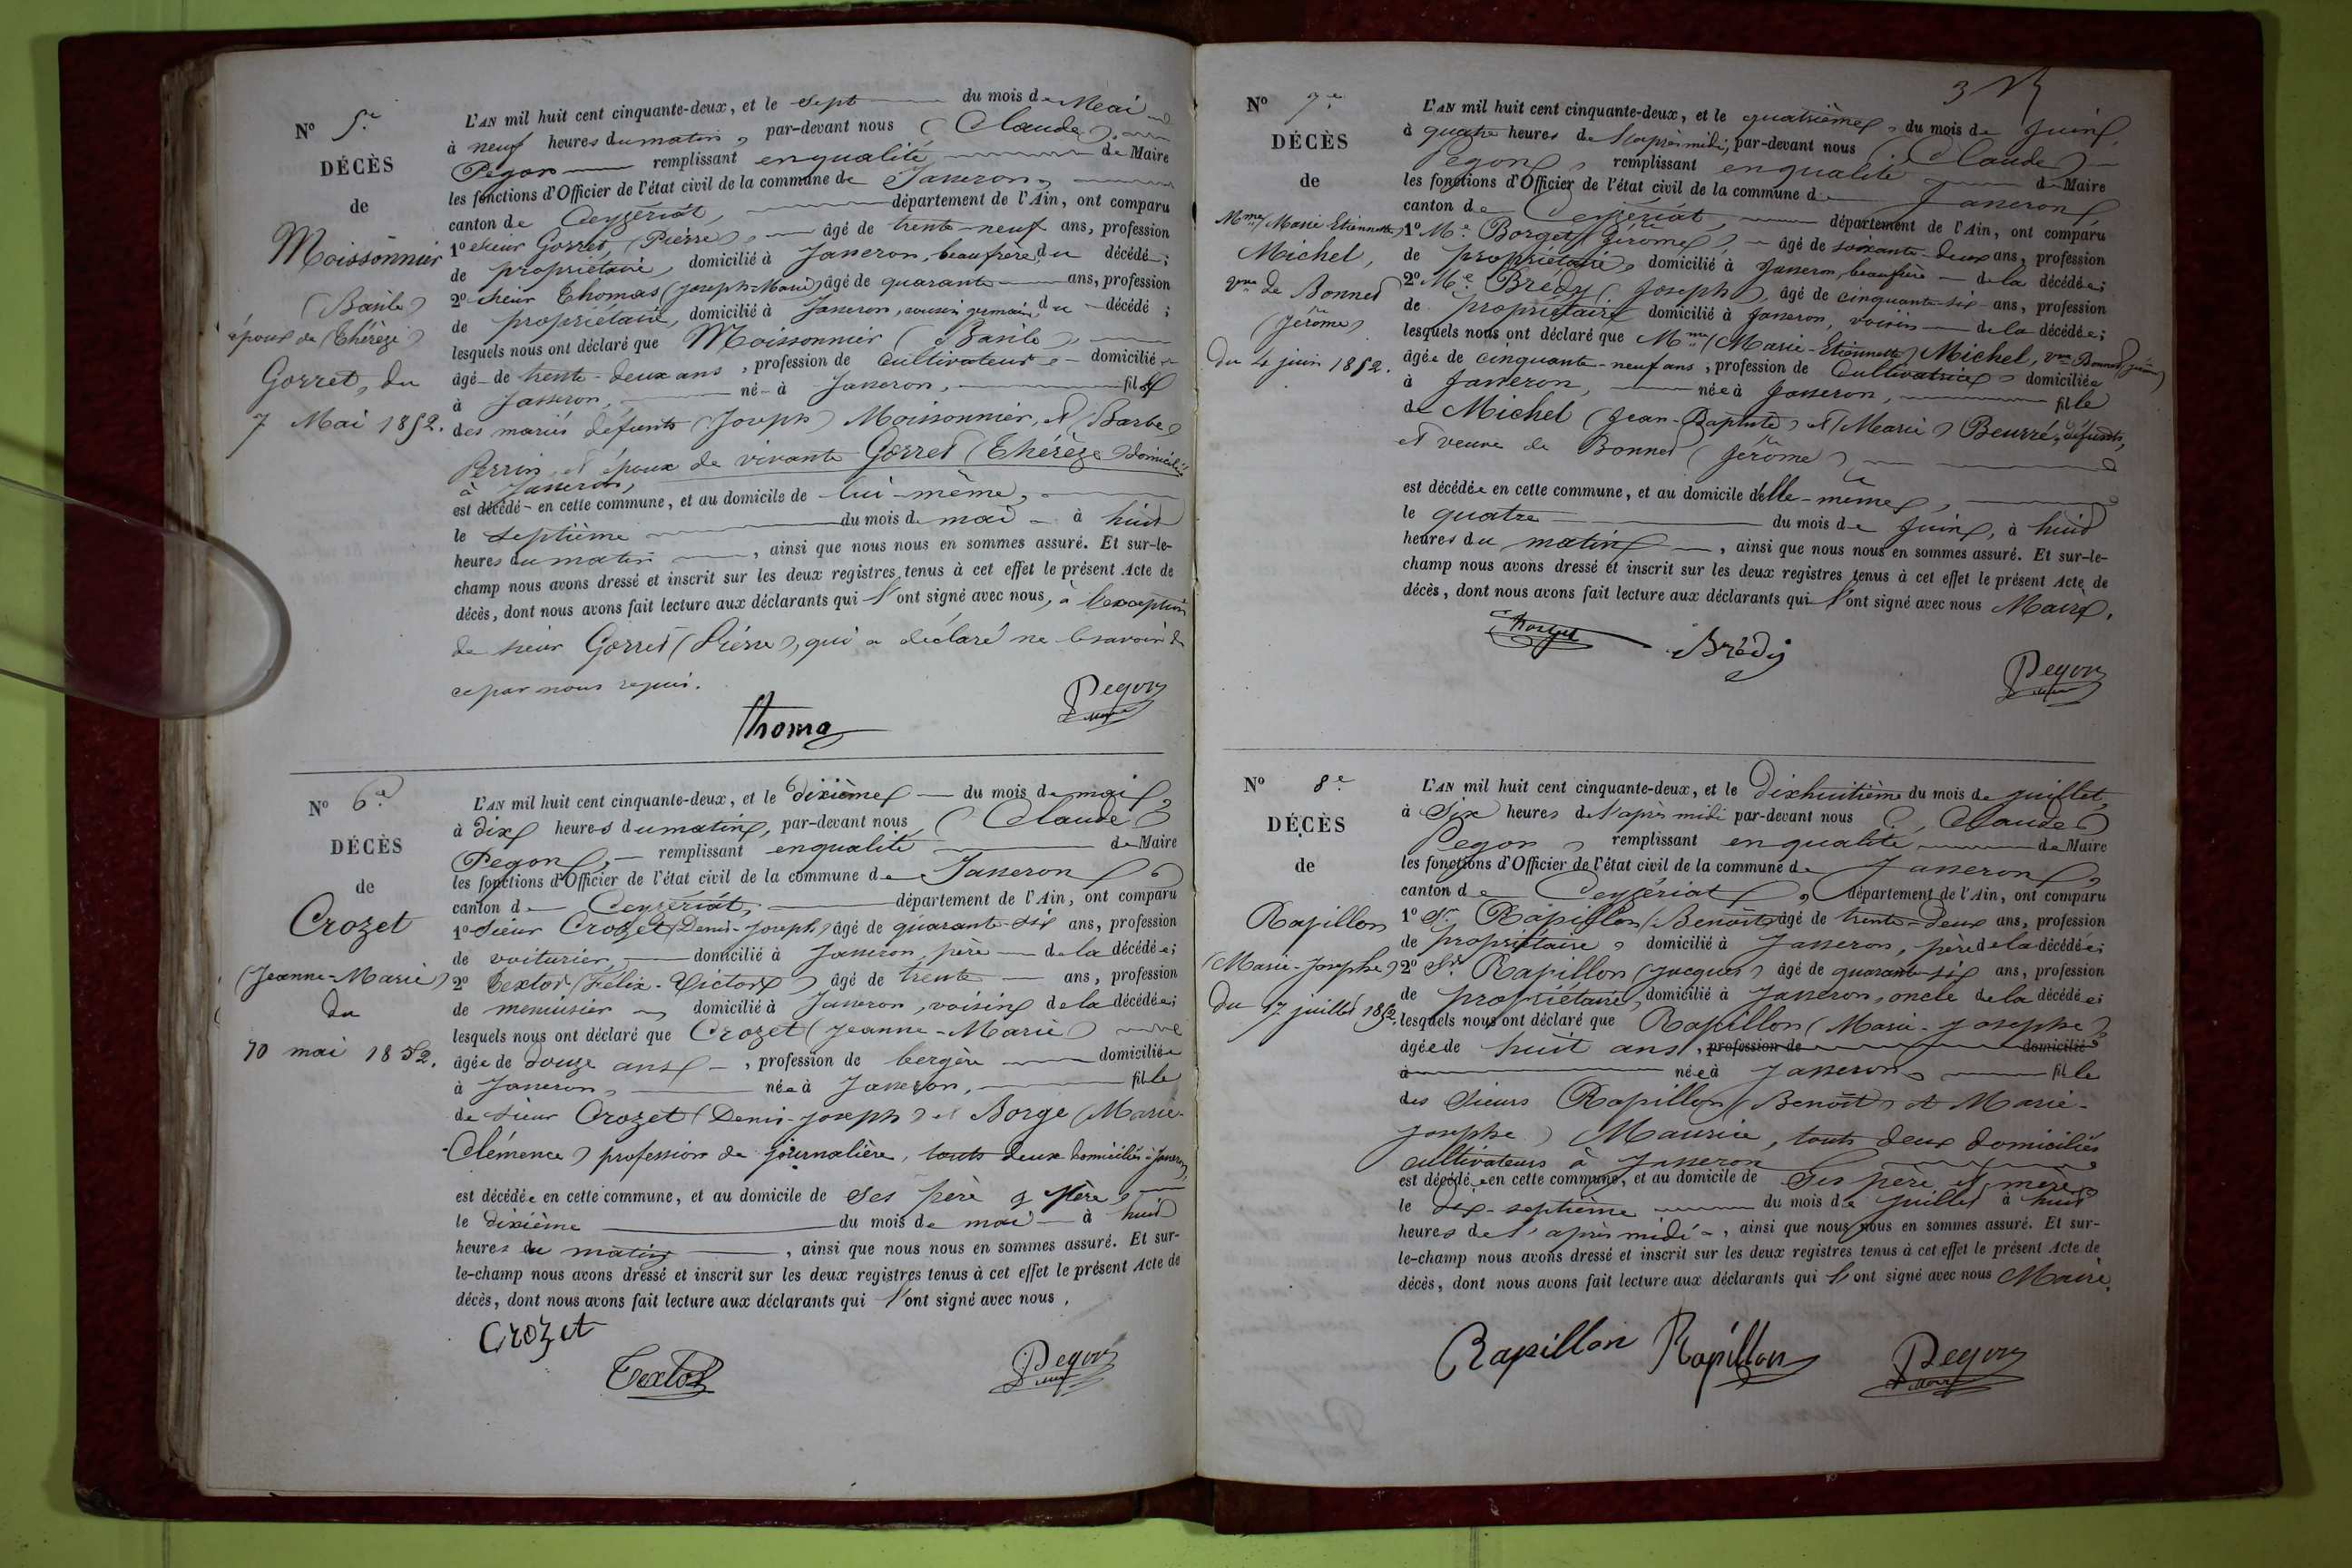 N° 5e
DÉCÈS
de
Moissonnier
(Basile)
époux de (Thérèze)
Gorret, du
7 Mai 1852.
L'AN mil huit cent cinquante-deux, et le sept du mois de Mai
à neuf heures du matin, par-devant nous (Claude)
Pegon remplissant en qualité de Maire
les fonctions d'Officier de l'état civil de la commune de Jasseron,
canton de Ceyzériat, département de l'Ain, ont comparu
1° sieur Gorret (Pierre), âgé de trente-neuf ans, profession
de propriétaire, domicilié à Jasseron, beaufrère du décédé;
2° sieur Thomas (Joseph-Marie) âgé de quarante ans, profession
de propriétaire, domicilié à Jasseron, cousin germain du décédé;
lesquels nous ont déclaré que Moissonnier (Basile),
âgé de trente-deux ans, profession de cultivateur domicilié
à Jasseron, né à Jasseron, fils
des mariés défunts (Joseph) Moissonnier, et (Barbe)
Perrin, et époux de vivante Gorret (Thérèze) domiciliée
à Jasseron,
est décédé en cette commune, et au domicile de lui-même,
le septième du mois de mai à huit
heures du matin, ainsi que nous nous en sommes assuré. Et sur-le-
champ nous avons dressé et inscrit sur les deux registres tenus à cet effet le présent Acte de
décès, dont nous avons fait lecture aux déclarants qui l'ont signé avec nous, à l'exception
de sieur Gorret (Pierre), qui a déclaré ne le savoir de
ce par nous requis.
Thoma
Pegon
Maire
N° 6e
DÉCÈS
de
Crozet
(Jeanne-Marie)
du
10 mai 1852.
L'AN mil huit cent cinquante-deux, et le dixième du mois de mai,
à dix heures du matin, par-devant nous (Claude)
Pegon, remplissant en qualité de Maire
les fonctions d'Officier de l'état civil de la commune de Jasseron
canton de Ceyzériat, département de l'Ain, ont comparu
1° Sieur Crozet (Denis-Joseph) âgé de quarante-six ans, profession
de voiturier, domicilié à Jasseron, père de la décédée;
2° Textor (Félix-Victor) âgé de trente ans, profession
de menuisier domicilié à Jasseron, voisin de la décédée;
lesquels nous ont déclaré que Crozet (Jeanne-Marie)
âgée de douze ans, profession de bergère domiciliée
à Jasseron, née à Jasseron, fille
de sieur Crozet (Denis-Joseph) et Borge (Marie-
-Clémence) profession de journalière, touts deux domiciliés à Jasseron,
est décédée en cette commune, et au domicile de ses père & mère,
le dixième du mois de mai à huit
heures du matin, ainsi que nous nous en sommes assuré. Et sur-
le-champ nous avons dressé et inscrit sur les deux registres tenus à cet effet le présent Acte de
décès, dont nous avons fait lecture aux déclarants qui l'ont signé avec nous,
Crozet
Textor
Pegon
Maire
N° 7e
DÉCÈS
de
Mme (Marie Etiennette)
Michel,
vve de Bonnet
(Jérôme)
du 4 juin 1852.
L'AN mil huit cent cinquante-deux, et le quatrième du mois de Juin,
à quatre heures de l'après midi, par-devant nous (Claude)
Pegon, remplissant en qualité de Maire
les fonctions d'Officier de l'état civil de la commune de Jasseron
canton de Ceyzériat, département de l'Ain, ont comparu
1° Mr Borget (Jérôme), âgé de soixante-deux ans, profession
de propriétaire, domicilié à Jasseron, beaufrère de la décédée;
2° Mr Brédy (Joseph), âgé de cinquante-six ans, profession
de propriétaire domicilié à Jasseron, voisin de la décédée;
lesquels nous ont déclaré que Mme (Marie-Etiennette) Michel, vve Bonnet (Jérôme)
âgée de cinquante-neuf ans, profession de Cultivatrice, domiciliée
à Jasseron, née à Jasseron, fille
de Michel (Jean-Baptiste) et (Marie) Beurré, défunts,
et veuve de Bonnet (Jérôme)
est décédée en cette commune, et au domicile d'elle-même,
le quatre du mois de Juin, à huit
heures du matin, ainsi que nous nous en sommes assuré. Et sur-le-
champ nous avons dressé et inscrit sur les deux registres tenus à cet effet le présent Acte de
décès, dont nous avons fait lecture aux déclarants qui l'ont signé avec nous Maire.
Brédy
Pegon
Maire
N° 8e
DÉCÈS
de
Rapillon
(Marie-Josephe)
du 17 juillet 1852.
L'AN mil huit cent cinquante-deux, et le dixhuitième du mois de juillet,
à Six heures de l'après midi par-devant nous (Claude)
Pegon, remplissant en qualité de Maire
les fonctions d'Officier de l'état civil de la commune de Jasseron,
canton de Ceyzériat, département de l'Ain, ont comparu
1° Sr Rapillon (Benoît) âgé de trente-deux ans, profession
de propriétaire, domicilié à Jasseron, père de la décédée;
2° Sr Rapillon (Jacques) âgé de quarante-six ans, profession
de propriétaire, domicilié à Jasseron, oncle de la décédée;
lesquels nous ont déclaré que Rapillon (Marie-Josephe)
âgée de huit ans, profession de domicilié
à née à Jasseron, fille
des Sieurs Rapillon (Benoît) et Marie-
Josephe) Maurice, touts deux domiciliés
cultivateurs à Jasseron
est décédée en cette commune, et au domicile de Ses père et mère,
le dix-septième du mois de Juillet à huit
heures de l'après midi, ainsi que nous nous en sommes assuré. Et sur-
le-champ nous avons dressé et inscrit sur les deux registres tenus à cet effet le présent Acte de
décès, dont nous avons fait lecture aux déclarants qui l'ont signé avec nous Maire.
Rapillon Rapillon
Pegon
Maire